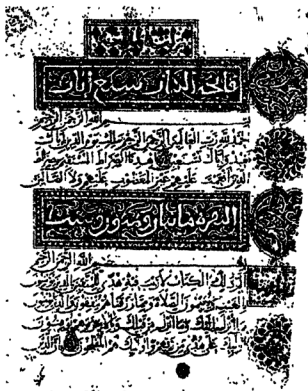 فاتحة الكتاب سبع آيات
بسم الله الرحمن الرحيم
الحمد لله رب العالمين الرحمن الرحيم ملك يوم الدين إياك
نعبد وإياك نستعين اهدنا الصراط المستقيم صراط
الذين أنعمت عليهم غير المغضوب عليهم ولا الضالين
البقرة مائتان وست
بسم الله الرحمن الرحيم
الم ذلك الكتاب لا ريب فيه هدى للمتقين الذين يؤمنون
بالغيب ويقيمون الصلاة ومما رزقناهم ينفقون والذين يؤمنون
بما أنزل إليك وما أنزل من قبلك وبالآخرة هم يوقنون
أولئك على هدى من ربهم وأولئك هم المفلحون إن الذين